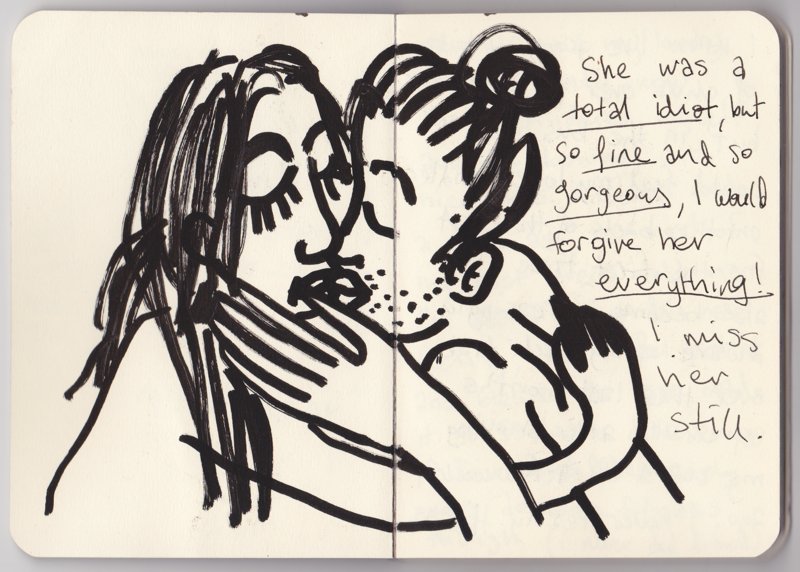 She was a
total idiot, but
so fine and so
gorgeous, I would
forgive her
everything!
I miss
her
still.